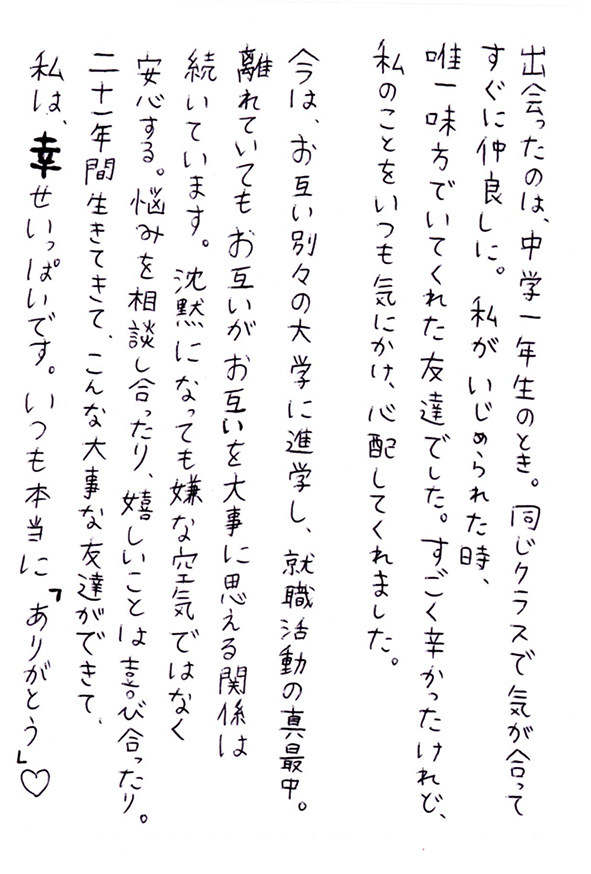 出会ったのは、中学一年生のとき。同じクラスで気が合って
すぐに仲良しに。私がいじめられた時、
唯一味方でいてくれた友達でした。すごく辛かったけれど、
私のことをいつも気にかけ、心配してくれました。
今は、お互い別々の大学に進学し、就職活動の真最中。
離れていてもお互いがお互いを大事に思える関係は
続いています。沈黙になっても嫌な空気ではなく
安心する。悩みを相談し合ったり、嬉しいことは喜び合ったり。
二十一年間生きてきて、こんな大事な友達ができて、
私は、幸せいっぱいです。いつも本当に「ありがとう」♡